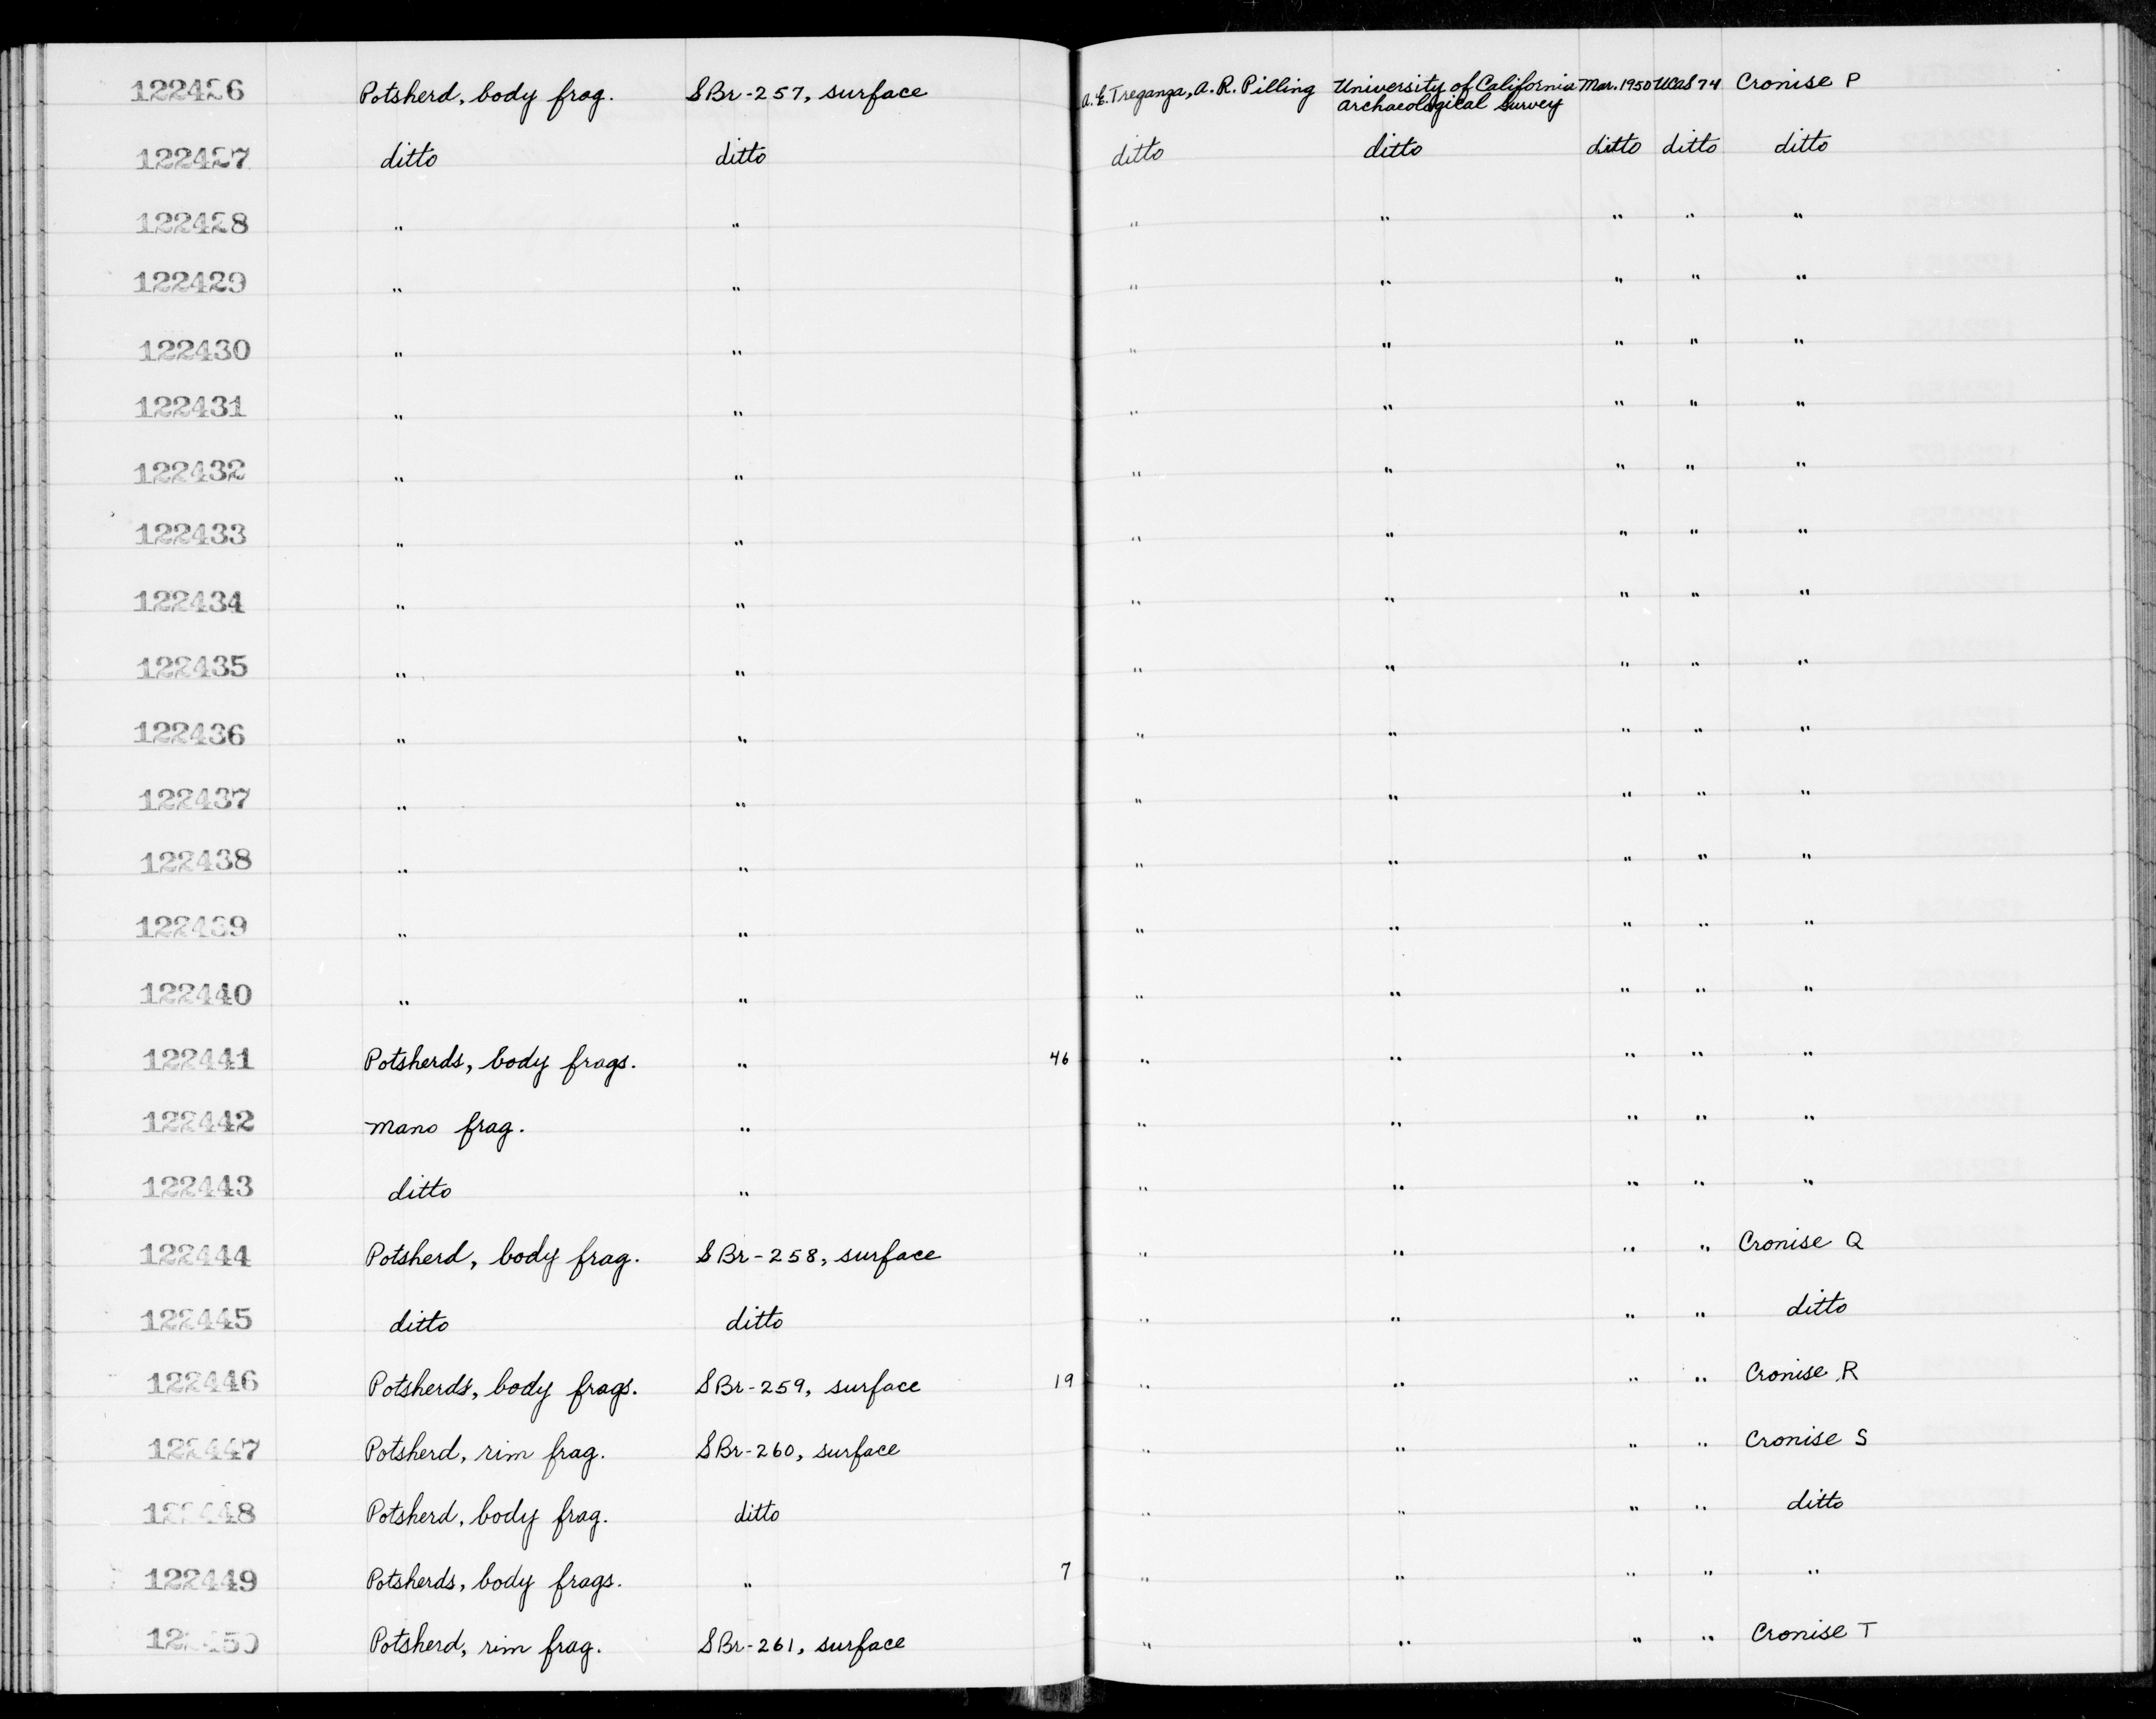 122426 Potsherd, body frag. SBr-257, surface A. E. Treganza, A. R. Pilling University of California Archaeological Survey Mar. 1950 UCAS 74 Cronise P
122427 ditto ditto ditto ditto ditto ditto ditto
122428 " " " " " " "
122429 " " " " " " "
122430 " " " " " " "
122431 " " " " " " "
122432 " " " " " " "
122433 " " " " " " "
122434 " " " " " " "
122435 " " " " " " "
122436 " " " " " " "
122437 " " " " " " "
122438 " " " " " " "
122439 " " " " " " "
122440 " " " " " " "
122441 Potsherds, body frags. " 46 " " " " "
122442 Mano frag. " " " " " "
122443 ditto " " " " " "
122444 Potsherd, body frag. SBr-258, surface " " " " Cronise Q
122445 ditto ditto " " " " ditto
122446 Potsherds, body frags. SBr-259, surface 19 " " " " Cronise R
122447 Potsherd, rim frag. SBr-260, surface " " " " Cronise S
122448 Potsherd, body frag. ditto " " " " ditto
122449 Potsherds, body frags. " 7 " " " " "
122450 Potsherd, rim frag. SBr-261, surface " " " " Cronise T